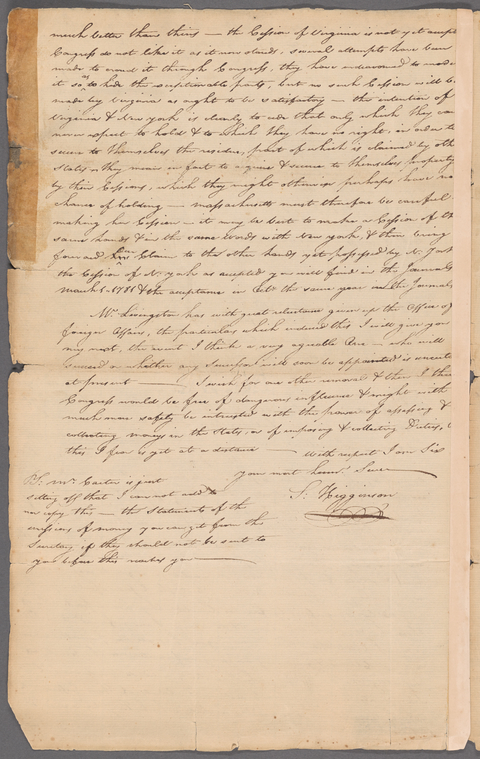 much better than this — the Cession of Virginia is not yet accept
Congress do not like it as it now stands, several attempts have been
made to crowd it through Congress, they have endeavoured to mode
it so as to hide the exceptionable parts, but no such Cession will be
made by Virginia as ought to be satisfactory — the intention of
Virginia & New york is clearly to cede that only which they can
never expect to hold & to which they have no right, in order to
secure to themselves the residue, part of which is claimed by othe
States, they mean in fact to acquire & secure to themselves property
by their Cessions, which they might otherwise perhaps, have no
chance of holding — massachusetts must therefore be careful
making her Cession — it may be best to make a Cession of the
same lands & in the same words with New york, & then bring
forward her Claim to the other lands yet possessed by N. York
the Cession of N. york as accepted you will find in the Journals
March 1 - 1781 & the acceptance in Octr the same year in the Journals
Mr. Livingston has with great reluctance given up the Office of
foreign Affairs, the particulars which induced this I will give you
in my next, the event I think a very agreable One — who will
succeed or whether any Successor will soon be appointed is uncerta
at present — I wish for one other removal & then I think
Congress would be free of dangerous influence & might with
much more safety be intrusted with the power of assessing &
collecting money in the States, or of imposing & collecting Duties,
this I fear is yet at a distance — With respect I am Sir
your most humb. Serv
S. Higginson
PS. Mr. Carter is just
setting off that I can not add to
nor copy this — the Statements of the
emissions of money you can get from the
Secretary if they should not be sent to
you before this reaches you